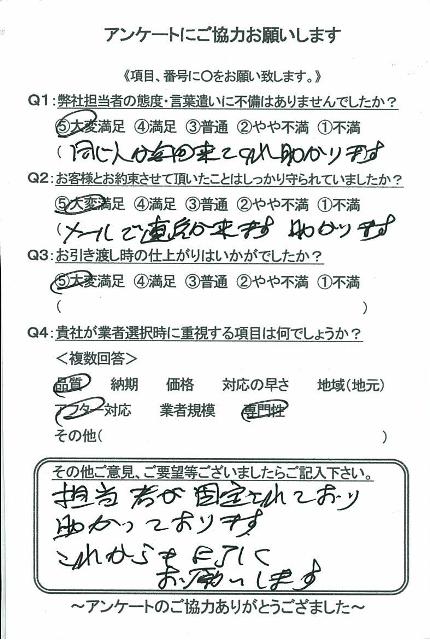 アンケートにご協力お願いします
《項目、番号に〇をお願い致します。》
Q1:弊社担当者の態度・言葉遣いに不備はありませんでしたか?
⑤大変満足 ④満足 ③普通 ②やや不満 ①不満
(同じ人が毎回来てくれ助かります
Q2:お客様とお約束させて頂いたことはしっかり守られていましたか?
⑤大変満足 ④満足 ③普通 ②やや不満 ①不満
(メールで連絡が来ます 助かります
Q3:お引き渡し時の仕上がりはいかがでしたか?
⑤大変満足 ④満足 ③普通 ②やや不満 ①不満
( )
Q4:貴社が業者選択時に重視する項目は何でしょうか?
<複数回答>
品質 納期 価格 対応の早さ 地域(地元)
アフター対応 業者規模 専門性
その他( )
その他ご意見、ご要望等ございましたらご記入下さい。
担当者が固定されており
助かっております
これからも宜しく
お願いします
~アンケートのご協力ありがとうござました~